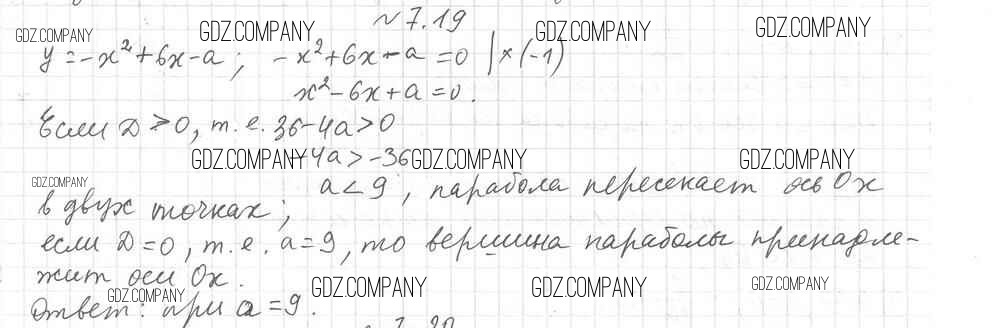 № 7.19
y = -x² + 6x - a; -x² + 6x - a = 0 | × (-1)
x² - 6x + a = 0.
Если D > 0, т.е. 36 - 4a > 0
-4a > -36
a < 9, парабола пересекает ось Ox
в двух точках;
если D = 0, т.е. a = 9, то вершина параболы принадле-
жит оси Ox.
Ответ: при a = 9.
GDZ.COMPANY
GDZ.COMPANY
GDZ.COMPANY
GDZ.COMPANY
GDZ.COMPANY
GDZ.COMPANY
GDZ.COMPANY
GDZ.COMPANY
GDZ.COMPANY
GDZ.COMPANY
GDZ.COMPANY
GDZ.COMPANY